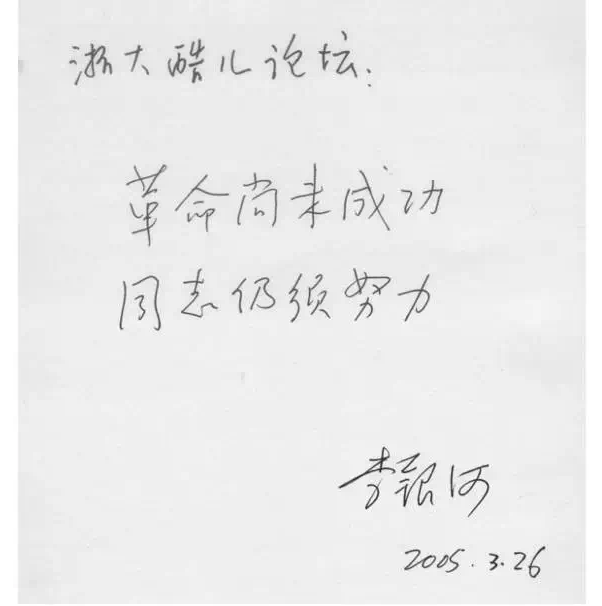 浙大酷儿论坛:
革命尚未成功
同志仍须努力
李银河
2005.3.26